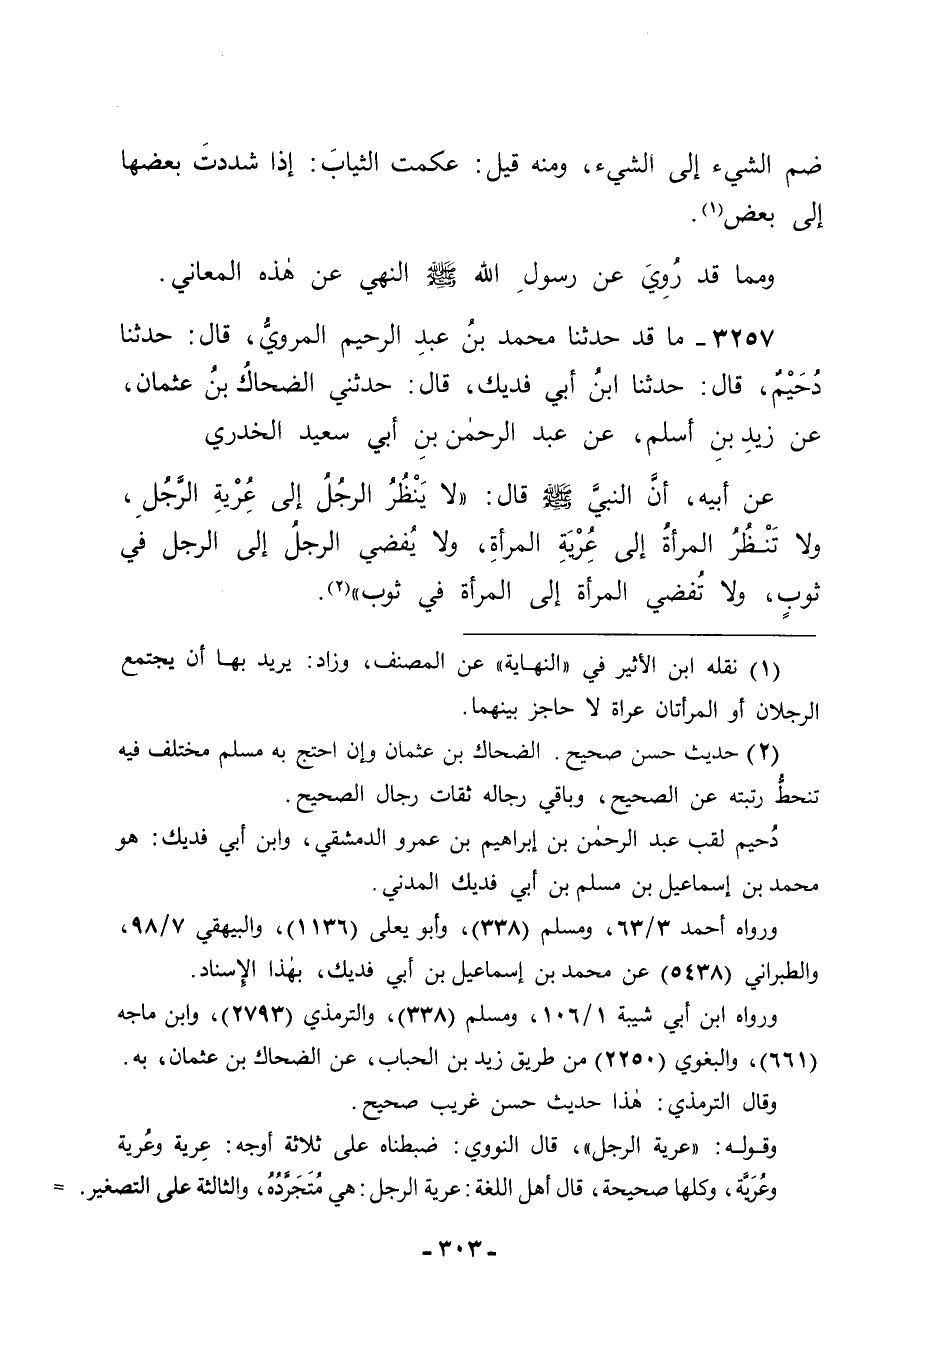 ضم الشيء إلى الشيء، ومنه قيل: عكمت الثيابَ: إذا شددتَ بعضها
إلى بعض(١).
ومما قد رُوِيَ عن رسولِ الله ﷺ النهي عن هٰذه المعاني.
٣٢٥٧ـ ما قد حدثنا محمد بنُ عبدِ الرحيم المرويُّ، قال: حدثنا
دُحَيْمٌ، قال: حدثنا ابنُ أبي فديك، قال: حدثني الضحاكُ بنُ عثمان،
عن زيدِ بنِ أسلم، عن عبد الرحمٰن بنِ أبي سعيد الخدري
عن أبيه، أنَّ النبيَّ ﷺ قال: «لا يَنْظُرُ الرجُلُ إلى عُِرْيةِ الرَّجُلِ،
ولا تَنْظُرُ المرأةُ إلى عُِرْيَةِ المرأةِ، ولا يُفضي الرجلُ إلى الرجل في
ثوبٍ، ولا تُفضي المرأة إلى المرأة في ثوب»(٢).
(١) نقله ابن الأثير في «النهاية» عن المصنف، وزاد: يريد بها أن يجتمع
الرجلان أو المرأتان عراة لا حاجز بينهما.
(٢) حديث حسن صحيح. الضحاك بن عثمان وإن احتج به مسلم مختلف فيه
تنحطُّ رتبته عن الصحيح، وباقي رجاله ثقات رجال الصحيح.
دُحيم لقب عبد الرحمٰن بن إبراهيم بن عمرو الدمشقي، وابن أبي فديك: هو
محمد بن إسماعيل بن مسلم بن أبي فديك المدني.
ورواه أحمد ٦٣/٣، ومسلم (٣٣٨)، وأبو يعلى (١١٣٦)، والبيهقي ٩٨/٧،
والطبراني (٥٤٣٨) عن محمد بن إسماعيل بن أبي فديك، بهٰذا الإسناد.
ورواه ابن أبي شيبة ١٠٦/١، ومسلم (٣٣٨)، والترمذي (٢٧٩٣)، وابن ماجه
(٦٦١)، والبغوي (٢٢٥٠) من طريق زيد بن الحباب، عن الضحاك بن عثمان، به.
وقال الترمذي: هٰذا حديث حسن غريب صحيح.
وقوله: «عرية الرجل»، قال النووي: ضبطناه على ثلاثة أوجه: عِرية وعُرية
وعُرَيَّة، وكلها صحيحة، قال أهل اللغة: عرية الرجل: هي مُتَجَرَّدُهُ، والثالثة على التصغير. =
ـ ٣٠٣ ـ